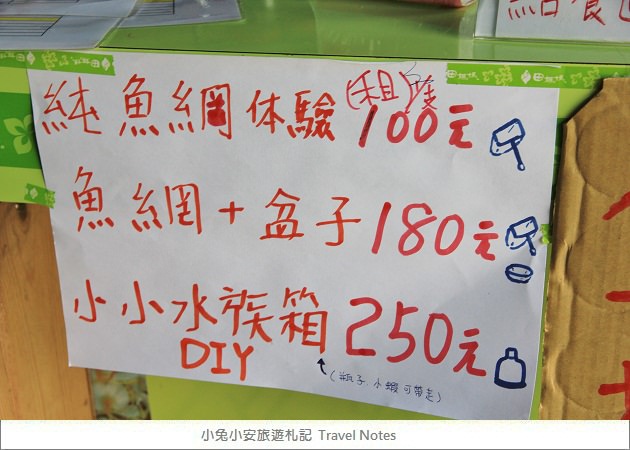 純魚網体驗(租)100元
魚網+盆子180元
小小水族箱250元
DIY
(瓶子.小蝦可帶走)
小兔小安旅遊札記 Travel Notes